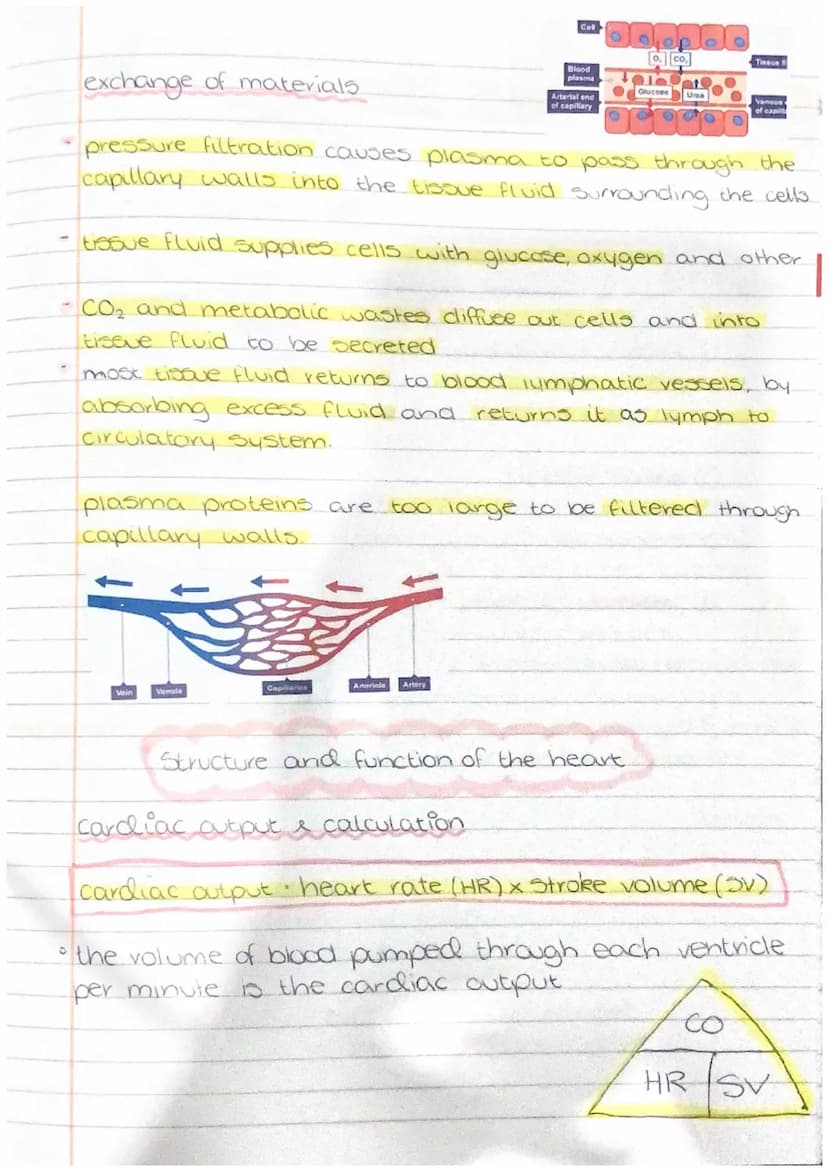 Cell
O₂ CO₂
Tissue fl
Blood
plasma
Glucose
Urea
Arterial end
of capillary
Venous
of capilla
exchange of materials
- pressure filtration causes plasma to pass through the
capillary walls into the tissue fluid surrounding the cells
- tissue fluid supplies cells with glucose, oxygen and other
- CO₂ and metabolic wastes diffuse out cells and into
tissue fluid to be secreted
- most tissue fluid returns to blood lymphatic vessels, by
absorbing excess fluid and returns it as lymph to
circulatory system.
plasma proteins are too large to be filtered through
capillary walls.
Vein Venule Capillaries Arteriole Artery
Structure and function of the heart
cardiac output & calculation
cardiac output = heart rate (HR) x stroke volume (SV)
° the volume of blood pumped through each ventricle
per minute is the cardiac output
CO
HR SV